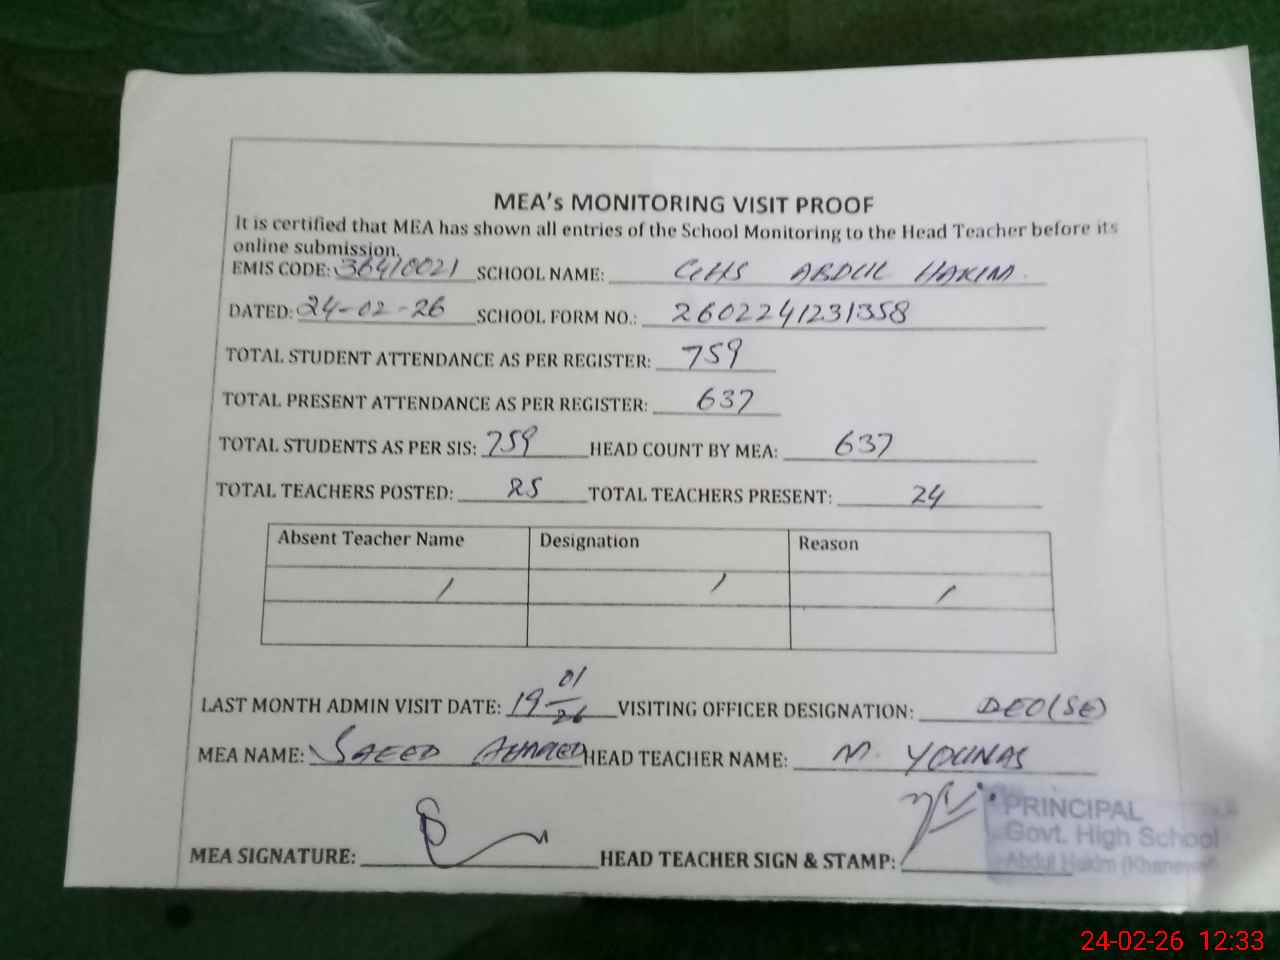 MEA's MONITORING VISIT PROOF
It is certified that MEA has shown all entries of the School Monitoring to the Head Teacher before its
online submission.
EMIS CODE: 36410021 SCHOOL NAME: GHS ABDUL HAKIM
DATED: 24-02-26 SCHOOL FORM NO.: 2602241231358
TOTAL STUDENT ATTENDANCE AS PER REGISTER: 759
TOTAL PRESENT ATTENDANCE AS PER REGISTER: 637
TOTAL STUDENTS AS PER SIS: 759 HEAD COUNT BY MEA: 637
TOTAL TEACHERS POSTED: 25 TOTAL TEACHERS PRESENT: 24
Absent Teacher Name Designation Reason
/ / /
LAST MONTH ADMIN VISIT DATE: 19-01-26 VISITING OFFICER DESIGNATION: DEO(SE)
MEA NAME: SAEED AHMED HEAD TEACHER NAME: M. YOUNAS
PRINCIPAL
Govt. High School
Abdul Hakim (Khanewal)
MEA SIGNATURE: HEAD TEACHER SIGN & STAMP:
24-02-26 12:33